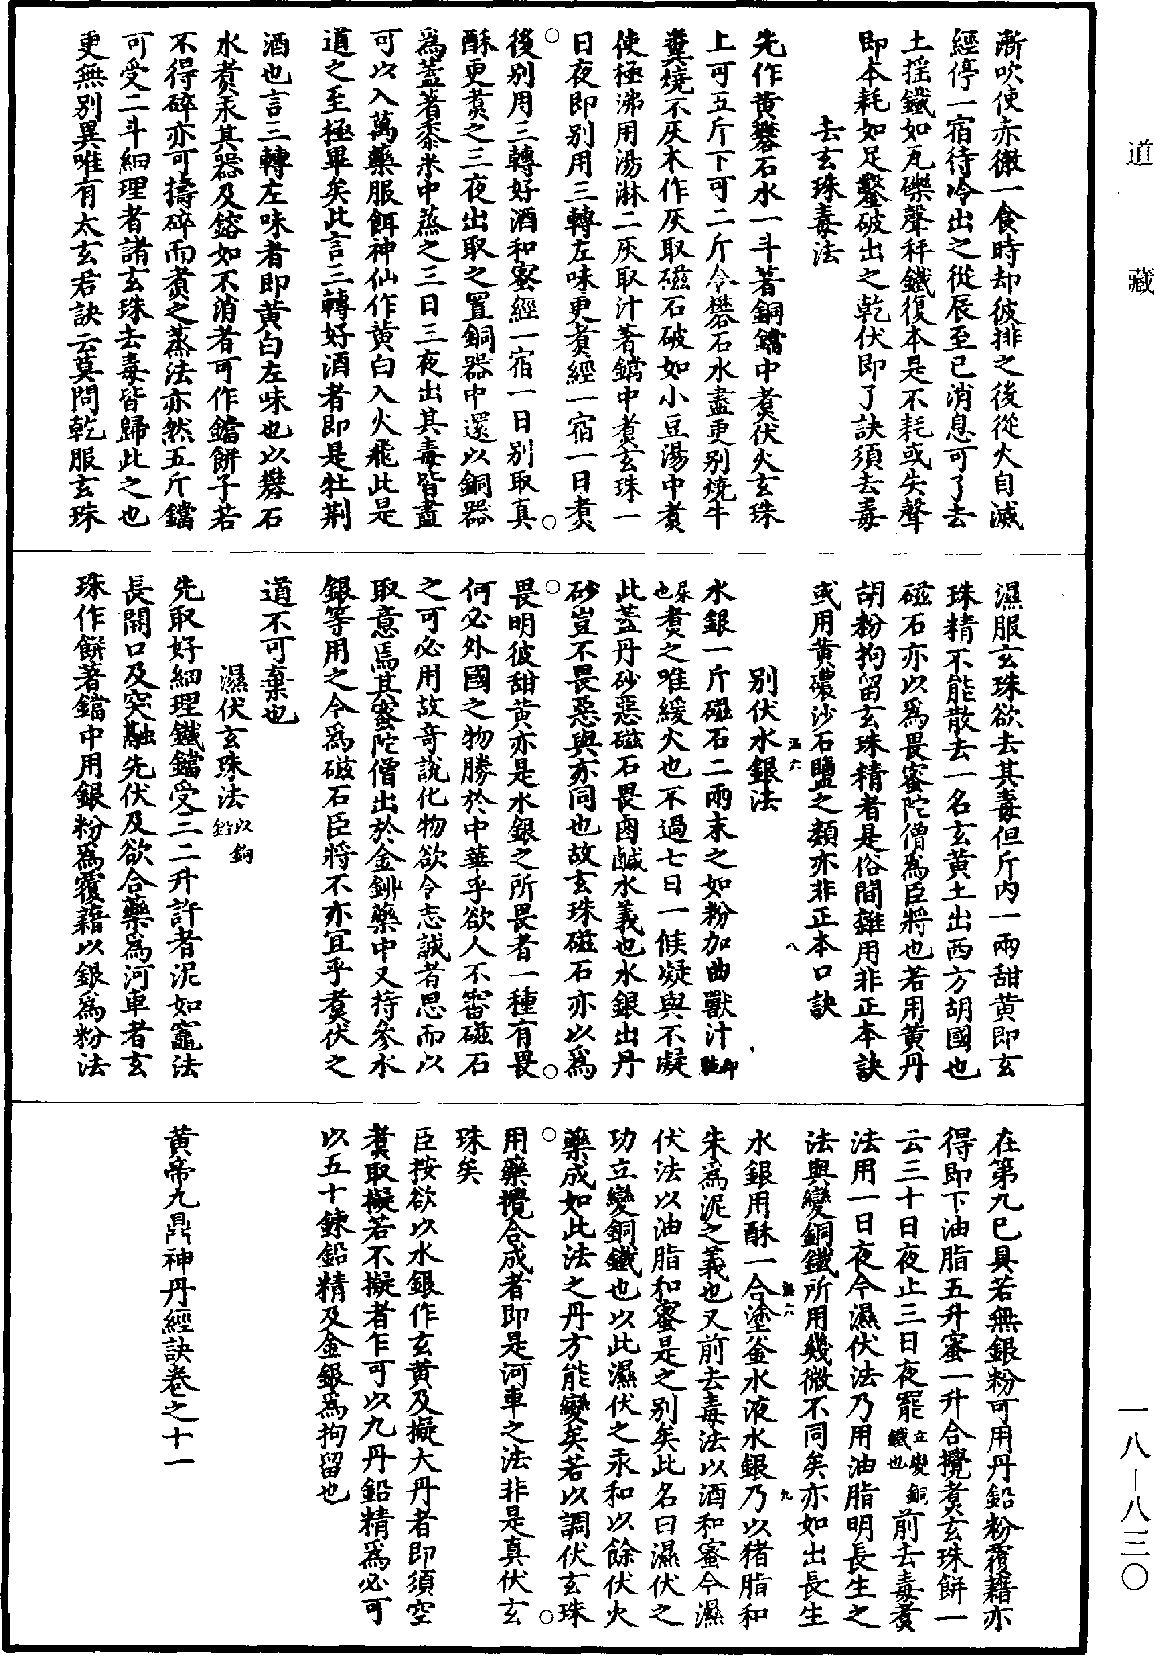 道藏
一八—八三〇
漸吹使赤徹一食時却彼排之後從火自滅
經停一宿待冷出之從辰至巳消息可了去
土搖鐵如瓦礫聲秤鐵復本是不耗或失聲
即本耗如足鑿破出之乾伏即了訣須去毒
去玄珠毒法
先作黄礬石水一斗著銅鐺中煑伏火玄珠
上可五斤下可二斤令礬石水盡更别燒牛
糞燒不灰木作灰取磁石破如小豆湯中煑
使極沸用湯淋二灰取汁著鐺中煑玄珠一
日夜即别用三轉左味更煑經一宿一日煑
後别用三轉好酒和蜜經一宿一日别取真
酥更煑之三夜出取之置銅器中還以銅器
爲蓋著黍米中蒸之三日三夜出其毒皆盡
可以入萬藥服餌神仙作黄白入火飛此是
道之至極畢矣此言三轉好酒者即是牡荆
酒也言三轉左味者即黄白左味也以礬石
水煑汞其器及鎔如不消者可作鐺餅子若
不得碎亦可擣碎而煑之蒸法亦然五斤鐺
可受二斗細理者諸玄珠去毒皆歸此之也
更無别異唯有太玄君訣云莫問乾服玄珠
濕服玄珠欲去其毒但斤内一兩甜黄即玄
珠精不能散去一名玄黄土出西方胡國也
磁石亦以爲畏蜜陀僧爲臣將也若用黄丹
胡粉拘留玄珠精者是俗間雜用非正本訣
或用黄礞沙石鹽之類亦非正本口訣
别伏水銀法
水銀一斤磁石二兩末之如粉加曲獸汁
煑之唯緩火也不過七日一候凝與不凝
此蓋丹砂惡磁石畏鹵鹹水義也水銀出丹
砂豈不畏惡與亦同也故玄珠磁石亦以爲
畏明彼甜黄亦是水銀之所畏者一種有畏
何必外國之物勝於中華乎欲人不審磁石
之可必用故奇說化物欲令志誠者思而以
取意焉其蜜陀僧出於金鉚藥中又持參水
銀等用之令爲磁石臣將不亦宜乎煑伏之
道不可棄也
濕伏玄珠法
先取好細理鐵鐺受三二升許者泥如竈法
長開口及突融先伏及欲合藥爲河車者玄
珠作餅著鐺中用銀粉爲覆藉以銀爲粉法
在第九已具若無銀粉可用丹鉛粉覆藉亦
得即下油脂五升蜜一升合攪煑玄珠餅一
云三十日夜止三日夜罷立變銅鐵也前去毒煑
法用一日夜今濕伏法乃用油脂明長生之
法與變銅鐵所用幾微不同矣亦如出長生
水銀用酥一合塗釜水液水銀乃以猪脂和
朱爲泥之義也又前去毒法以酒和蜜今濕
伏法以油脂和蜜是之别矣此名曰濕伏之
功立變銅鐵也以此濕伏之汞和以餘伏火
藥成如此法之丹方能變矣若以調伏玄珠
用藥攪合成者即是河車之法非是真伏玄
珠矣
臣按欲以水銀作玄黄及擬大丹者即須空
煑取擬若不擬者乍可以九丹鉛精爲必可
以五十鍊鉛精及金銀爲拘留也
黄帝九鼎神丹經訣卷之十一